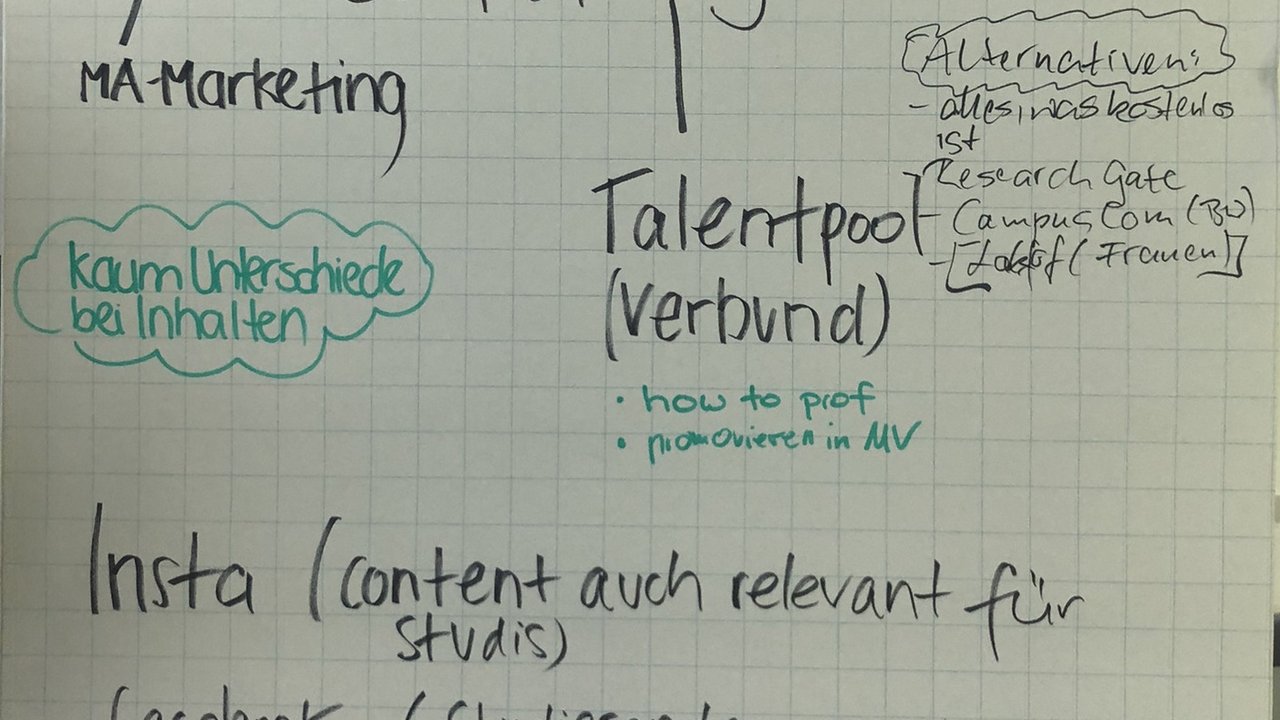 MA-Marketing
Alternativen:
- alles, was kostenlos
ist
- Research Gate
- Campus Com (BW)
- [ (Frauen)]
Talentpool
(Verbund)
• how to prof
• promovieren in MV
Kaum Unterschiede
bei Inhalten
Insta (content auch relevant für
Studis)